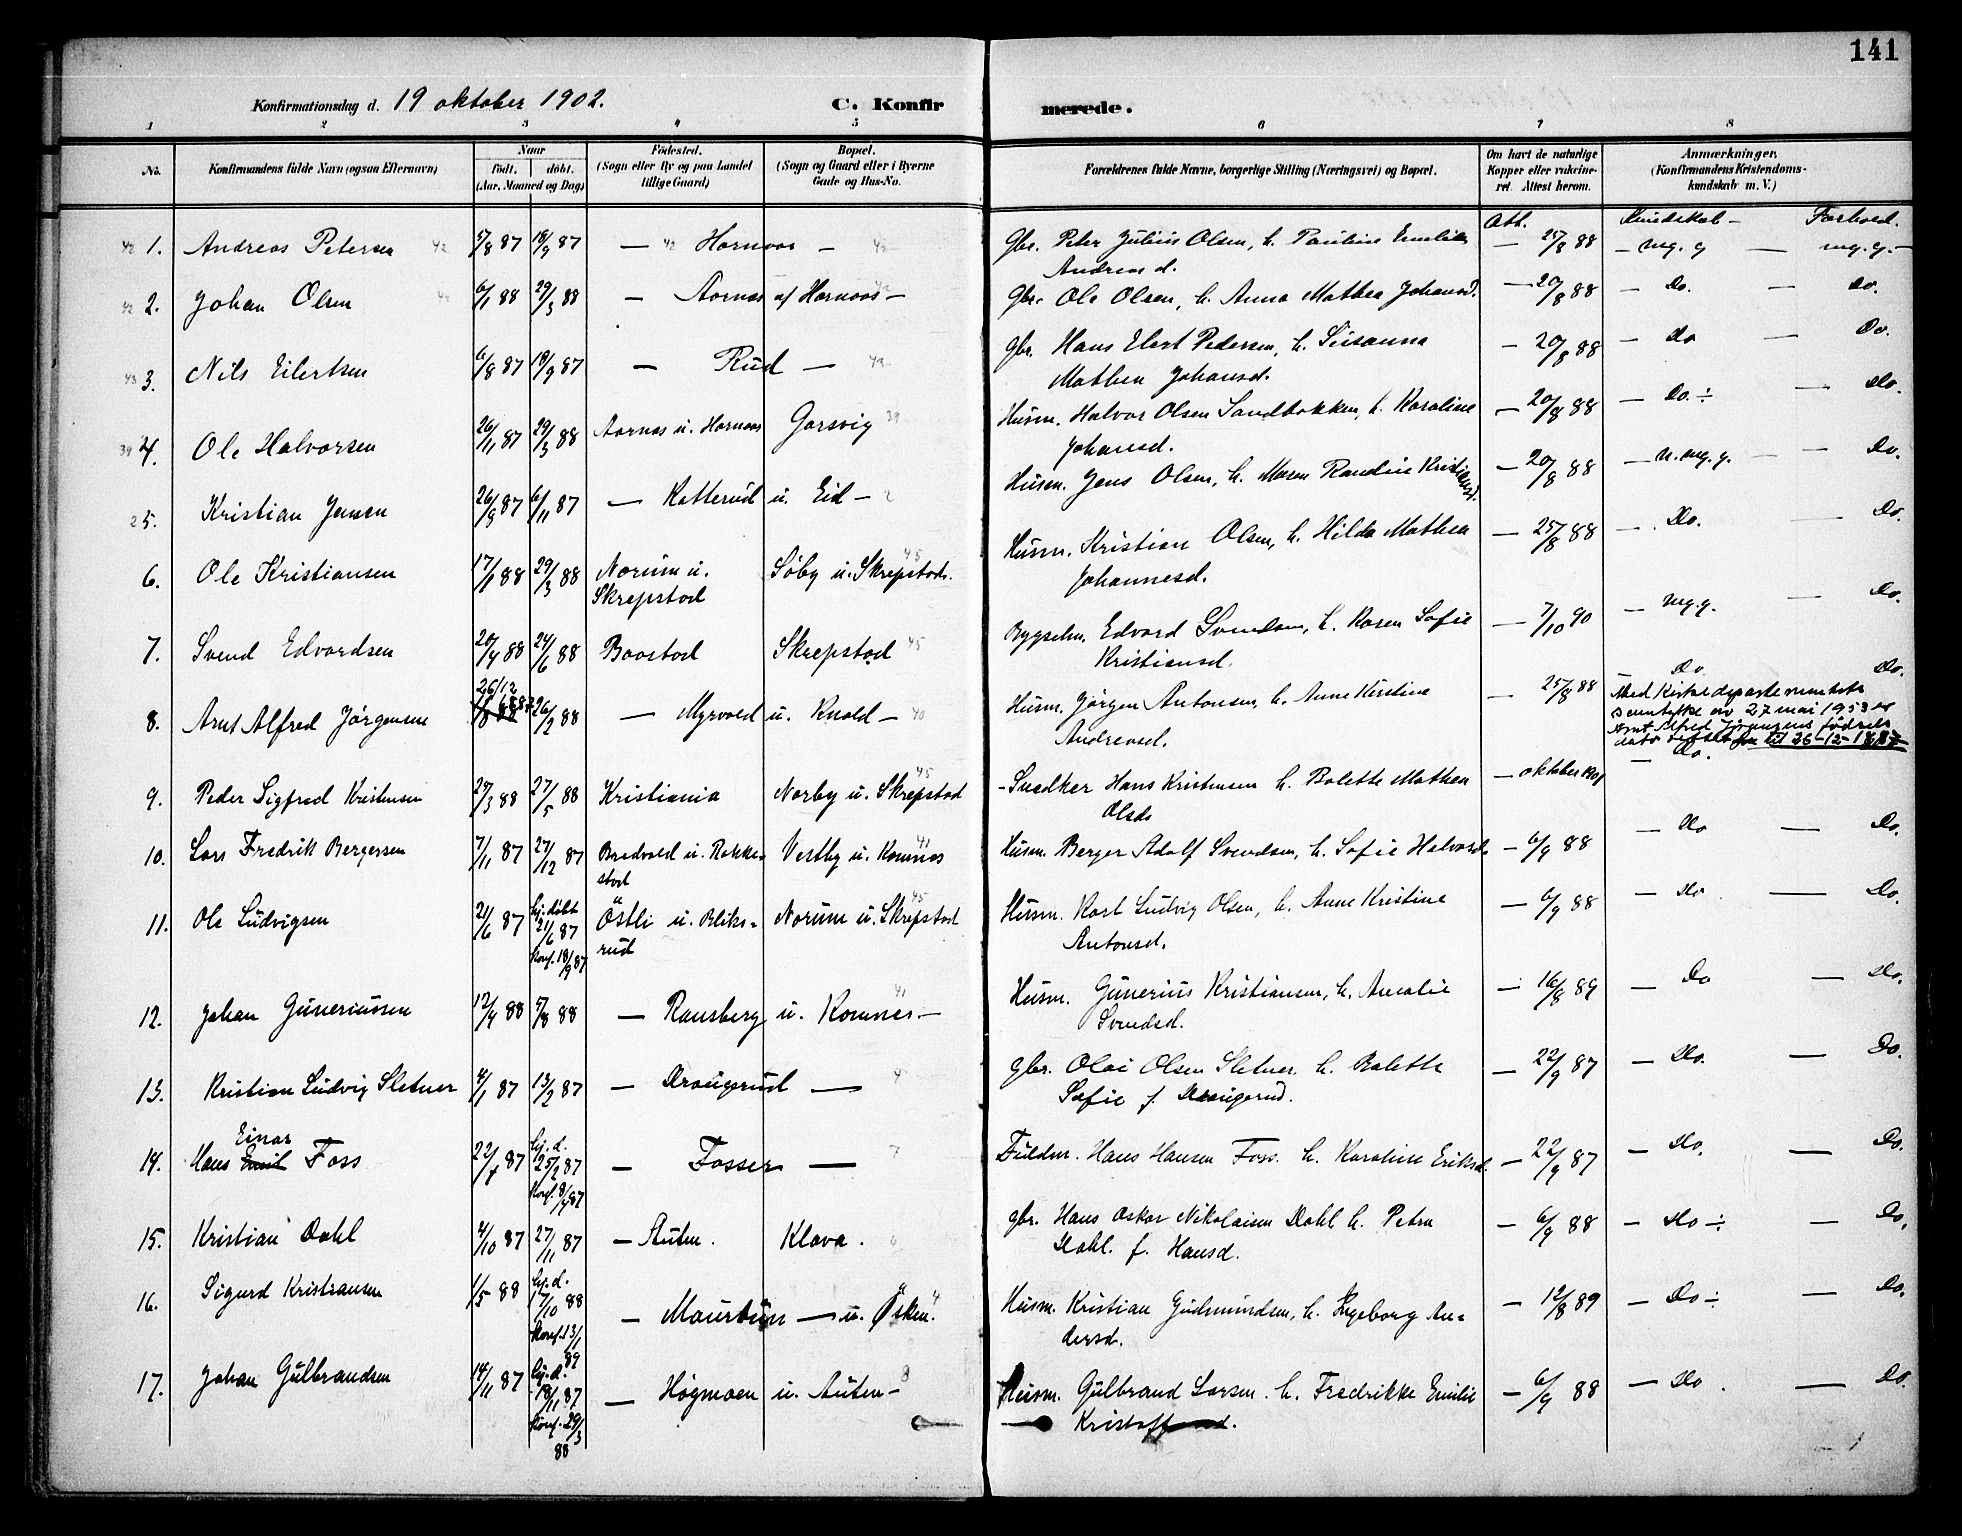 141
Konfirmationsdag d. 19 oktober 1902.
C. Konfir
merede.
1 2 3 4 5 6 7 8
No.
Konfirmandens fulde Navn (ogsaa Efternavn)
Naar
født. døbt.
(Aar, Maaned og Dag)
Fødested.
(Sogn eller By og paa Landet
tillige Gaard)
Bopæl.
(Sogn og Gaard eller i Byerne
Gade og Hus-No.
Forældrenes fulde Navne, borgerlige Stilling (Næringsvei) og Bopæl.
Om havt de naturlige
Kopper eller vakcine-
ret. Attest herom.
Anmærkninger.
(Konfirmandens Kristendoms-
kundskab m. V.)
Att. Kundskab – Forhold.
1. Andreas Petersen 5/8 87 18/9 87 — Hornaas — Gbr. Peter Julius Olsen, h. Pauline Emilie — 25/8 88 — mg. g — mg.g.—
Andreasd.
2. Johan Olsen 6/1 88 29/3 88 — Aarnas af Hornaas — Gbr. Ole Olsen, h. Anna Mathea Johansd. — 20/8 88 — Do. — do.
3. Nils Eilertsen 6/8 87 18/9 87 — Rud — Gbr. Hans Elert Pedersen, h. Susanna — 20/8 88 — do — Do.
Mathea Johansd.
4. Ole Halvorsen 26/11 87 29/3 88 Aarnas u. Hornaas Garsvig Husm. Halvor Olsen Sandbakken, h. Karoline — 20/8 88 — Do. ÷ — do.
Johansd.
5. Kristian Jensen 26/9 87 6/11 87 — Katterud u. Eid — Husm. Jens Olsen, h. Maren Randine Kristiansd. — 20/8 88 — n. mg. g. — Do.
6. Ole Kristiansen 17/1 88 29/3 88 Norum u. Søby u. Skrepstad. Husm. Kristian Olsen, h. Hilda Mathea — 25/8 88 — Do. — Do.
Skrepstad Johannesd.
7. Svend Edvardsen 20/4 88 24/6 88 Baastad Skrepstad Bygselm. Edvard Svendsen, h. Karen Sofie — 7/10 90 — mg.g. — Do.
Kristiansd.
26/12 1887
8. Arnt Alfred Jörgensen 26/2 88 — Myrvold u. Knold — Husm. Jörgen Antonsen, h. Anne Kirstine — 25/8 88 Do. Do.
Andreasd.
Med Kirkedepartementets
samtykke av 27 mai 1953 er
Arnt Alfred Jörgensens fødsels
dato rettet til 26-12-1887
9. Peder Sigfred Kristensen 29/3 88 27/5 88 Kristiania Norby u. Skrepstad – Snedker Hans Kristensen h. Bolette Mathea — oktober — Do.
Olsd.
10. Lars Fredrik Bergersen 7/11 87 27/12 87 Bredvold u. Rakke- Vestby u. Komnes Husm. Berger Adolf Svendsen, h. Sofie Halvorsd. — 6/9 88 — do — Do.
stad
11. Ole Ludvigsen 21/6 87 hj. døbt Östli u. Bliks- Norum u. Skrepstad Husm. Karl Ludvig Olsen, h. Anne Kristine — 6/9 88 — do — Do.
21/6 87 rud Antonsd.
Konf. 18/9 87
12. Johan Guneriussen 12/4 88 5/8 88 — Ransberg u. Komnes — Husm. Gunerius Kristiansen, h. Amalie — 16/8 89 — Do — do.
Svendsd.
13. Kristian Ludvig Sletner 4/1 87 13/2 87 — Draugerud — gbr. Olai Olsen Sletner h. Bolette — 22/9 87 — do. — Do.
Sofie f. Draugerud.
Einar
14. Hans Emil Foss 22/1 87 hj. d. — Fosser — Fuldm. Hans Hansen Foss. h. Karoline Eriksd. — 22/9 87 — do. — Do.
25/2 87
Konf. 8/4 87
15. Kristian Dahl 4/10 87 27/11 87 — Auten. Klova. gbr. Hans Oskar Nikolaisen Dahl h. Petra — 6/9 88 — do ÷ — Do.
Dahl. f. Hansd.
16. Sigurd Kristiansen 1/5 88 hj. d. — Maurtun — u. Ösken. Husm. Kristian Gudmundsen, h. Ingeborg An- — 12/8 89 — Do ÷ — Do.
17/10 88 dersd.
Konf. 13/1
89
17. Johan Gulbrandsen 14/11 87 hj. d. — Högmoen u. Auten — Husm. Gulbrand Larsen. h. Fredrikke Emilie — 6/9 88 — do — Do.
18/11 87 Kristoffersd.
Konf. 29/3
88